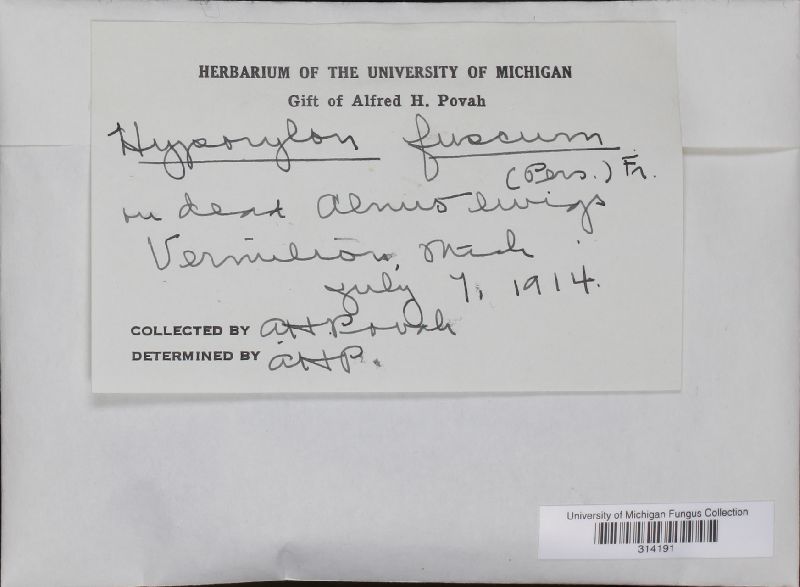 HERBARIUM OF THE UNIVERSITY OF MICHIGAN
Gift of Alfred H. Povah
Hypoxylon fuscum
(Pers.) Fr.
on dead Alnus twigs
Vermilion, Mich.
July 7, 1914.
COLLECTED BY AH Povah
DETERMINED BY AHP.
University of Michigan Fungus Collection
314191